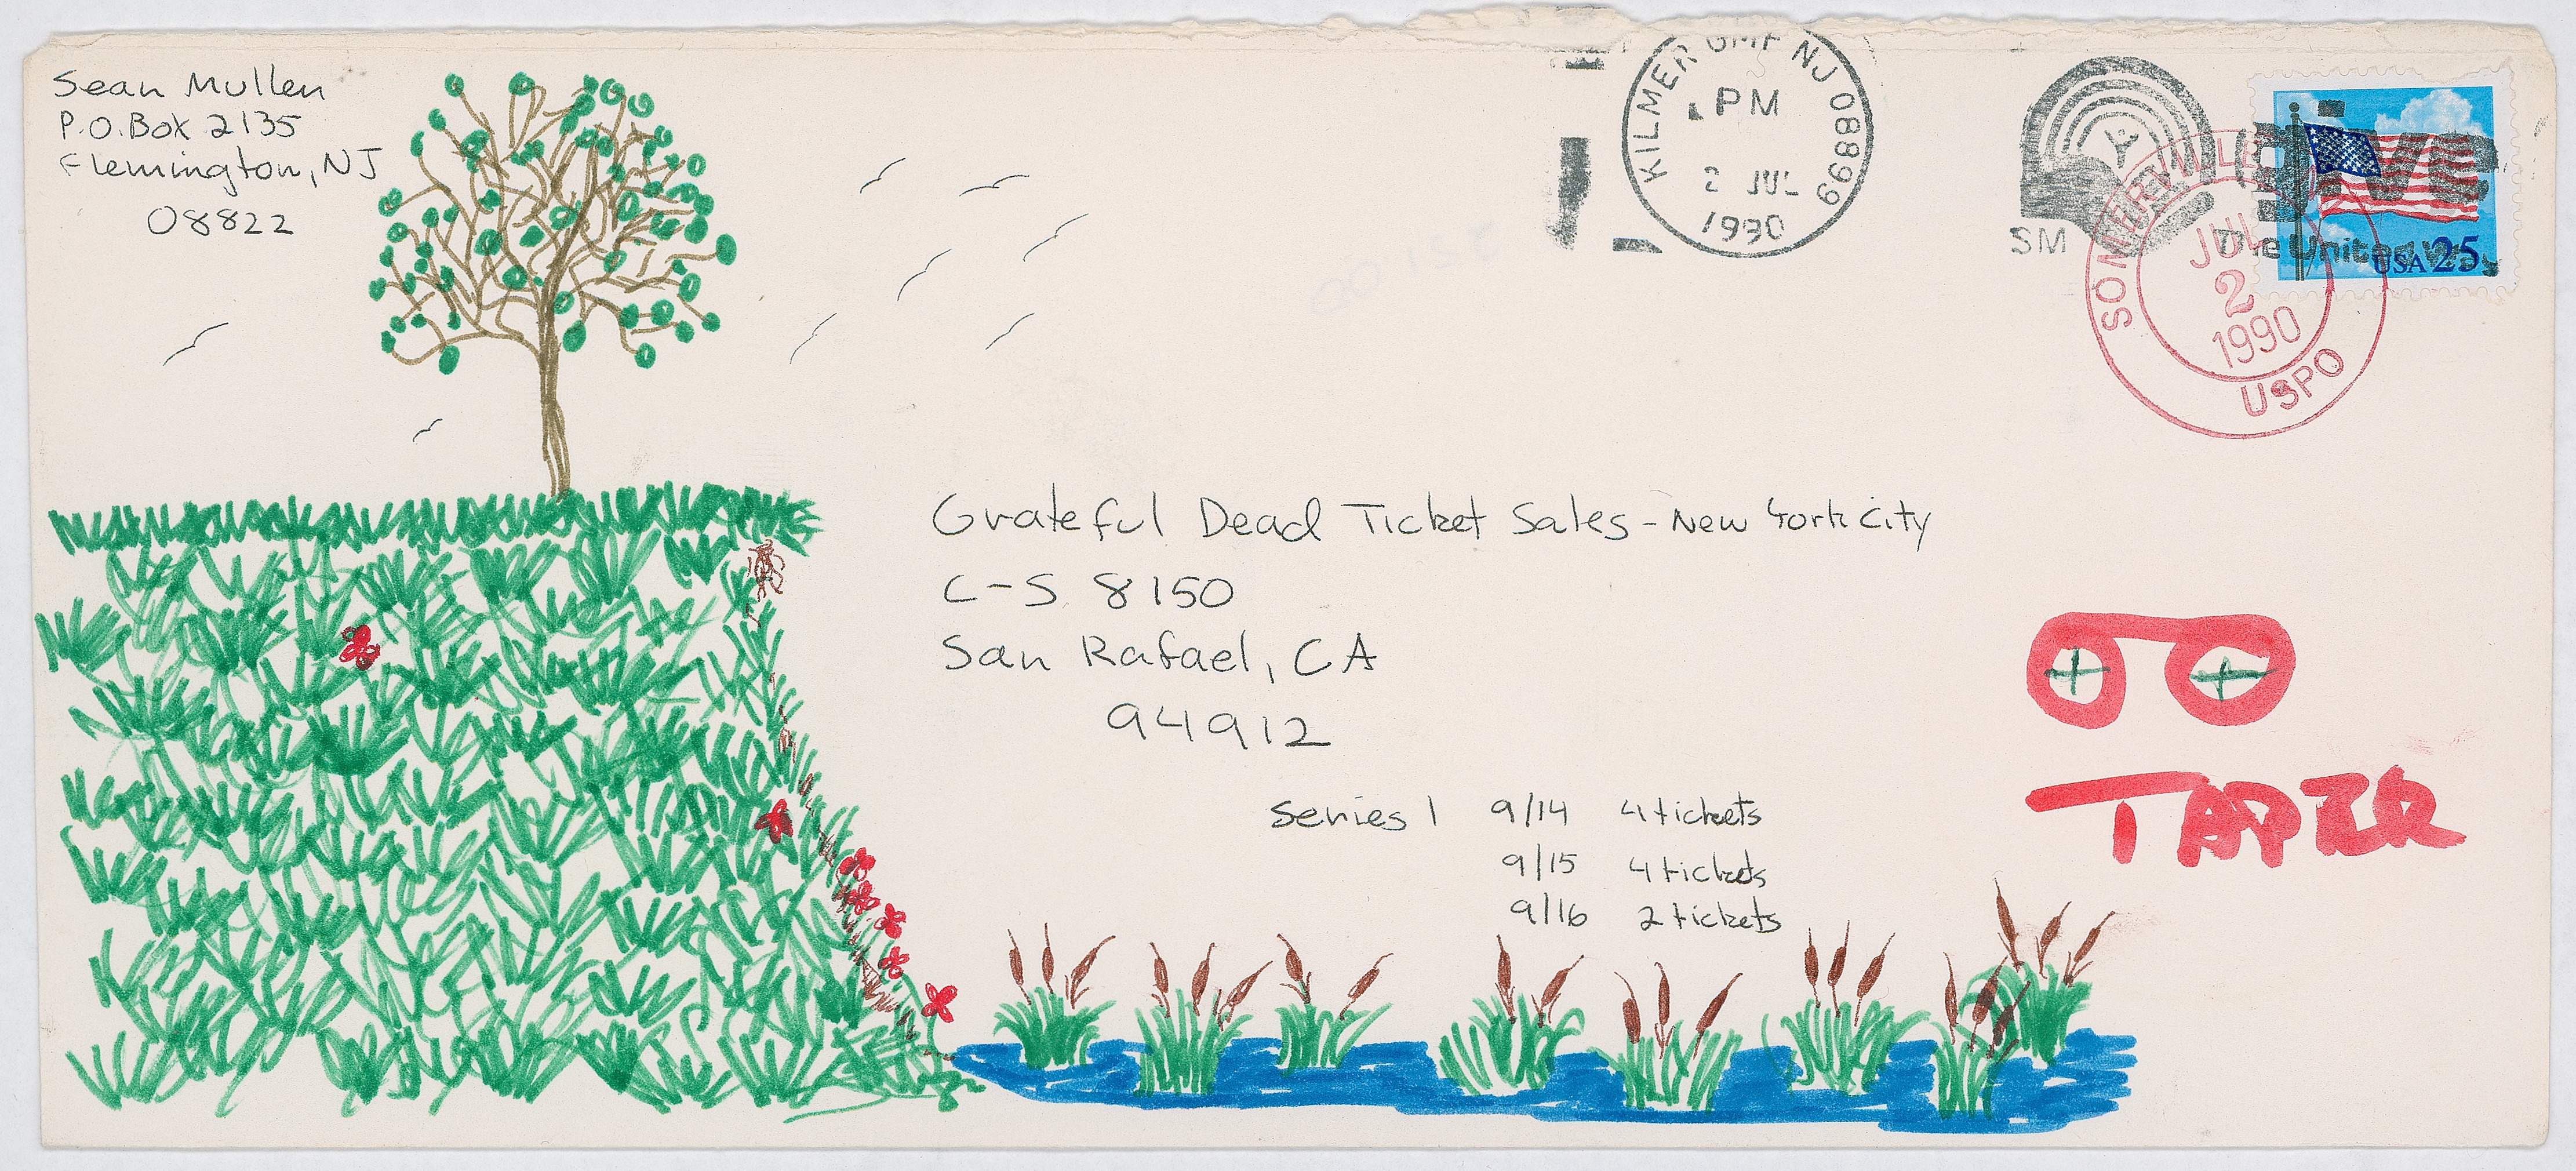 Sean Mullen
P.O. Box 2135
Flemington, NJ
08822
KILMER GMF NJ 08899
PM
2 JUL
1990
SM
give
The United Way
USA 25
SOMERVILLE
JUL
2
1990
USPO
Grateful Dead Ticket Sales - New York City
C-S 8150
San Rafael, CA
94912
Series 1 9/14 4 tickets
9/15 4 tickets
9/16 2 tickets
TAPER